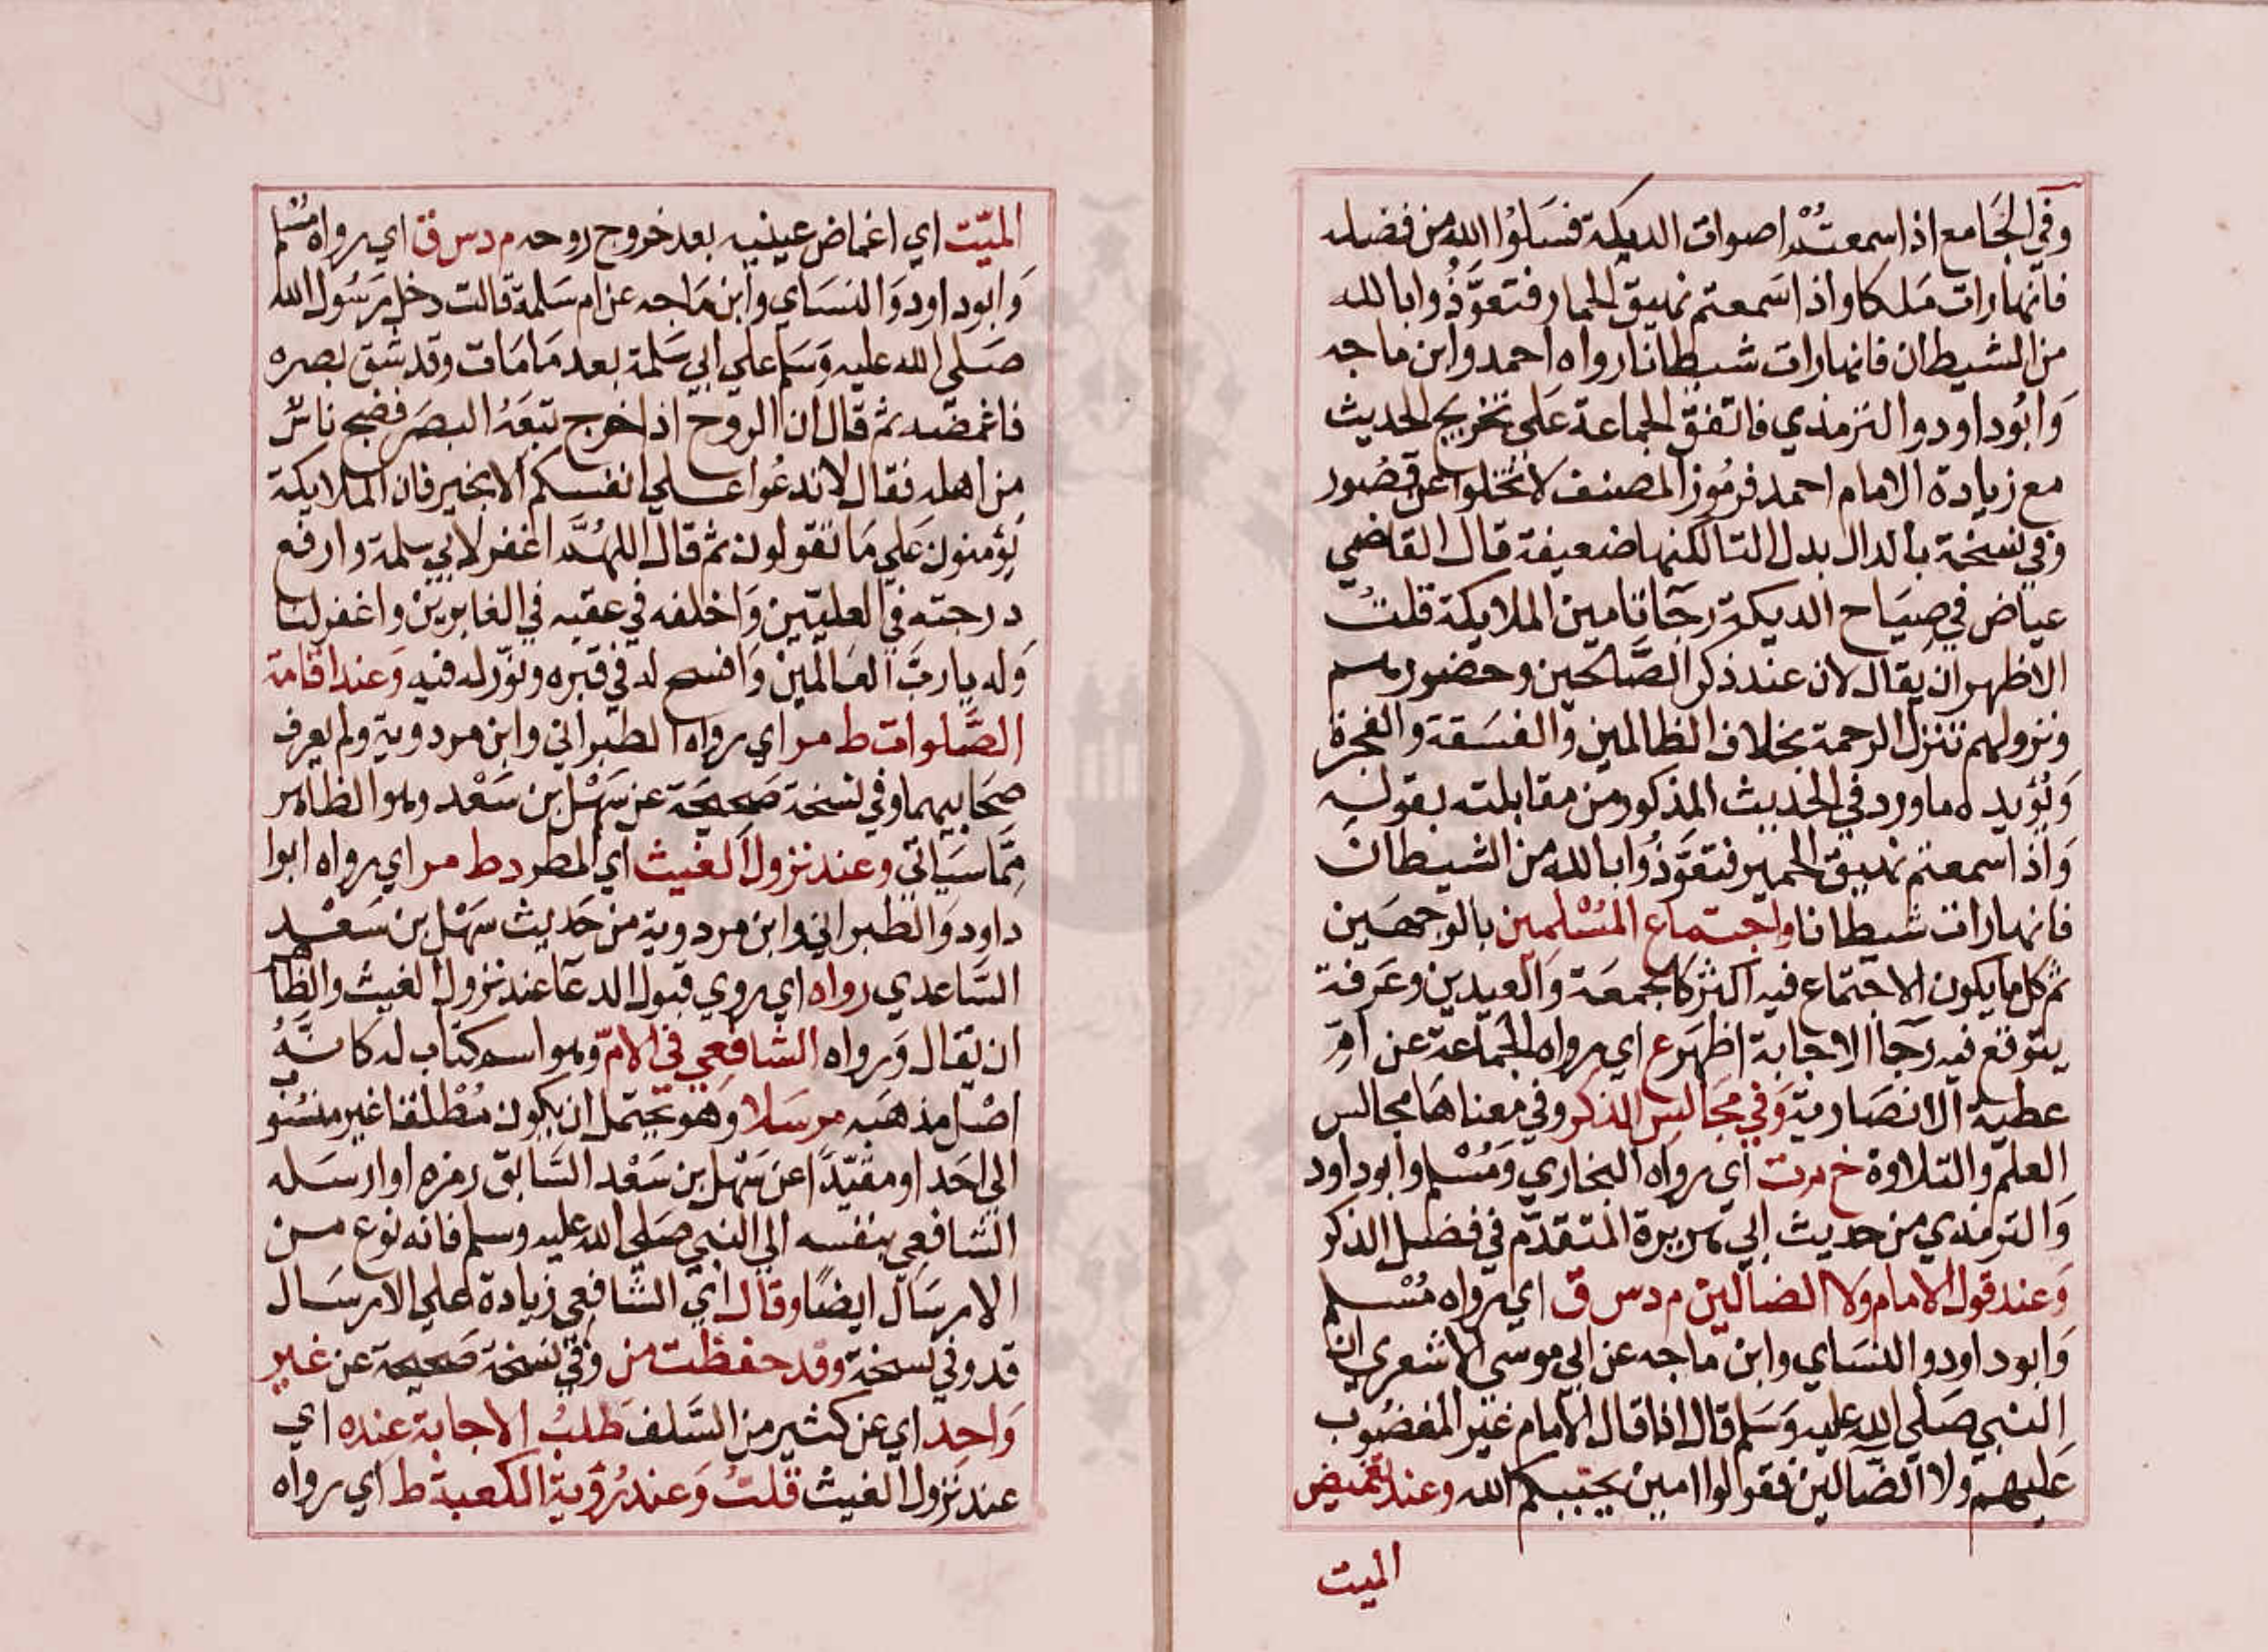 وفي الجَامع اذا سمعتُمْ اصوات الديكة فسَلوُا الله من فضله
فانها رات مَلكا واذا سَمعتم نهيق الحمار فتعوَّذُوا بالله
من الشيطان فانها رات شيطانا رواه احمد وابن ماجه
وَابُو داود والترمذي فاتفق الجماعة عَلي تخريج الحديث
مع زيادة الامام احمد فرمُوز المصنف لا تخلوا عن قصُور
وَفي نسخة بالدال بدل التا لكنها ضعيفة قال القاضي
عياض في صِيَاح الديكة رجَا تامين الملايكة قلتُ
الاظهر ان يقال لان عند ذكر الصَّالحين وحضورهم
ونزولهم تنزل الرحمة بخلاف الظالمين والفسَقة والفجرة
وَيُؤيده ما ورد في الحديث المذكور من مقابلته بقوله
وَاذا سمعتم نهيق الحمير فتعوَّذُوا بالله من الشيطان
فانها رات شيطانا واجتماع المسْلمين بالوجهَين
ثم كل ما يكون الاجتماع فيه اكثر كالجمعَة وَالعيدين وعَرفة
يتوقع فيه رجَا الاجابة اظهَر ع اي رواه الجمَاعة عن امّ
عطية الانصَارية وَفي مجَالس الذكر وفي معناهَا مجالس
العلم والتلاوة خ م د ت اي رواه البخاري وَمُسْلم وابو داود
وَالترمذي من حديث ابي هريرة المتقدّم في فضل الذكر
وَعند قول الامام ولا الضالين م د س ق اي رواه مُسْلم
وَابو داود والنسَاي وابن ماجه عن ابي موسى الاشعري ان
النبي صَلي الله عليه وَسَلم قال اذا قال الامام غير المغضُوب
عَليهم ولا الضالين فقولوا امين يجبكم الله وعند تغميض
الميت
الميّت اي اغماض عينيه بعد خروج روحه م د س ق اي رواه مُسْلم
وَابو داود وَالنسَاي وابن مَاجه عن ام سَلمة قالت دخل رَسُول الله
صَلي الله عليه وَسَلم علي ابي سَلمة بعد مَا مَات وقد شق بصره
فاغمضه ثم قال ان الروح اذا خرج تبعَهُ البصَر فضج ناسٌ
من اهله فقال لا تدعُوا عَلي انفسكم الا بخير فان الملايكة
يُؤمنون عَلي مَا تقولون ثم قال اللهُمَّ اغفر لابي سلمة وارفع
درجته في العليّين وَاخلفه في عقبه في الغابرين واغفر لنا
وَله يا ربَّ العالمين وَافسح له في قبره ونوّر له فيه وَعند اقامة
الصَّلوات ط مر اي رواه الطبراني وابن مردوية ولم يعرف
صحَابيهما وفي نسخة صَحيحَة عن سَهْل بن سَعْد وهو الظاهر
مِمّا سَياتي وعند نزول الغيث اي المطر د ط مر اي رواه ابوا
داود وَالطبراني وابن مردوية من حَديث سَهْل بن سَعْد
السَّاعدي رواه اي روي قبول الدعَا عند نزول الغيث والظاهر
ان يقال وَرواه الشافعي في الامّ وهو اسم كتاب له كانهُ
اصْل مذهَبه مرسَلا وَهو يحتمل ان يكون مُطْلقا غير منسُو
الي احَد او مقيّدًا عن سَهْل بن سَعْد السَّابق رمزه او ارسَله
الشافعي بنفسه الي النبي صَلي الله عليه وسلم فانه نوع من
الارسَال ايضًا وقال اي الشافعي زيادة علي الارسَال
قد وفي نسخة وقد حفظت من وَفي نسخة صَحيحة عن غير
وَاحد اي عن كثير من السَّلف طَلبُ الاجابة عنده اي
عند نزول الغيث قلتُ وَعند رُؤية الكعبة ط اي رواه